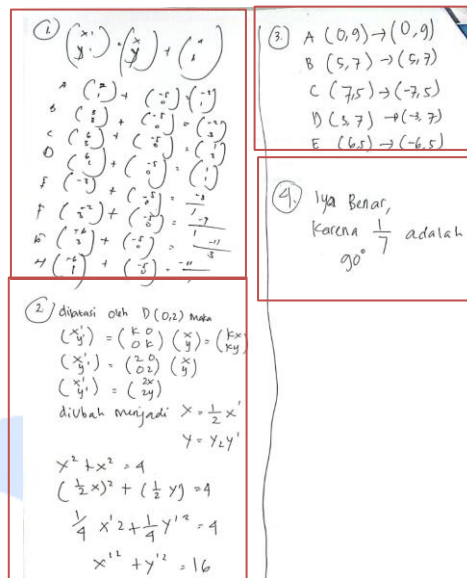 1.
(x' y') = (x y) + (a b)
A (2 1) + (-5 0) = (-3 1)
B + (-5 0)
C + (-5 0)
D + (-5 0)
+ (-5 0) = -8 1
F (-2 3) + (-5 0) = -7
(-6 3) + (-5 0) = -11 3
H (-6 1) + (-5 0) = -11
2. dilatasi oleh D (0,2) maka
(x' y') = (k 0 0 k) (x y) = (kx ky)
(x' y') = (2 0 0 2) (x y)
(x' y') = (2x 2y)
diubah menjadi x = 1/2 x'
y = 1/2 y'
x² + x² = 4
(1/2 x)² + (1/2 y) = 4
1/4 x'2 + 1/4 y'² = 4
x'² + y'² = 16
3. A (0,9) → (0,9)
B (5,7) → (5,7)
C (7,5) → (-7,5)
D (3,7) → (-3,7)
E (6,5) → (-6,5)
4. Iya Benar,
karena 1/7 adalah
90°